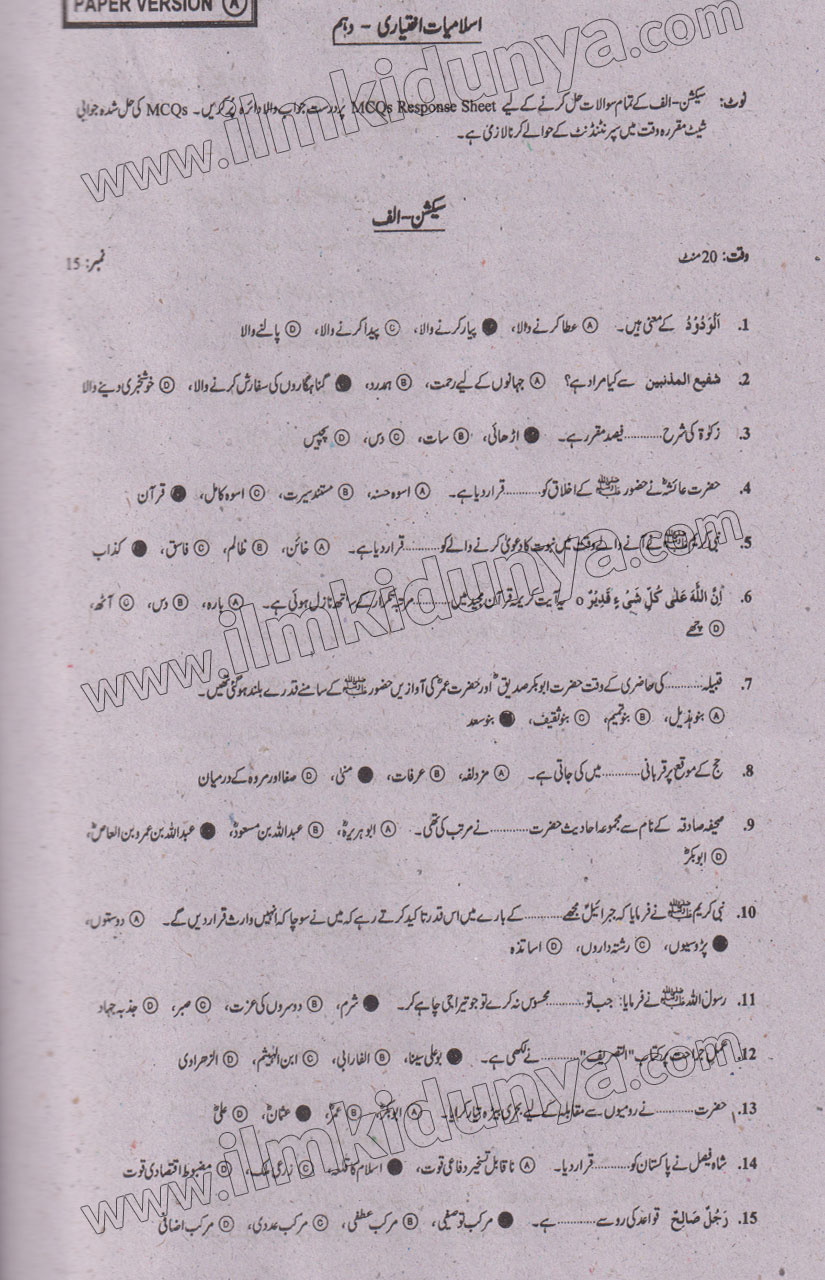 PAPER VERSION A
اسلامیات اختیاری - دہم
نوٹ: سیکشن-الف کے تمام سوالات حل کرنے کے لیے MCQs Response Sheet پر درست جواب والا دائرہ پُر کریں۔ MCQs کی حل شدہ جوابی
شیٹ مقررہ وقت میں سپرنٹنڈنٹ کے حوالے کرنا لازمی ہے۔
سیکشن-الف
وقت: 20 منٹ
نمبر: 15
1. اَلْوَدُوْدُ کے معنی ہیں۔ Ⓐ عطا کرنے والا، ● پیار کرنے والا، Ⓒ پیدا کرنے والا، Ⓓ پالنے والا
2. شفیع المذنبین سے کیا مراد ہے؟ Ⓐ جہانوں کے لیے رحمت، Ⓑ ہمدرد، ● گناہگاروں کی سفارش کرنے والا، Ⓓ خوشخبری دینے والا
3. زکوٰۃ کی شرح .......... فیصد مقرر ہے۔ ● اڑھائی، Ⓑ سات، Ⓒ دس، Ⓓ پچیس
4. حضرت عائشہؓ نے حضور ﷺ کے اخلاق کو .......... قرار دیا ہے۔ Ⓐ اسوہ حسنہ، Ⓑ مستند سیرت، Ⓒ اسوہ کامل، ● قرآن
5. نبی کریم ﷺ نے آنے والے وقت میں نبوت کا دعویٰ کرنے والے کو .......... قرار دیا ہے۔ Ⓐ خائن، Ⓑ ظالم، Ⓒ فاسق، ● کذاب
6. اِنَّ اللّٰهَ عَلٰى كُلِّ شَىْءٍ قَدِيْرٌ o یہ آیت کریمہ قرآن مجید میں .......... مرتبہ تکرار کے ساتھ نازل ہوئی ہے۔ Ⓐ بارہ، Ⓑ دس، Ⓒ آٹھ،
Ⓓ چھے
7. قبیلہ .......... کی حاضری کے وقت حضرت ابوبکر صدیقؓ اور حضرت عمرؓ کی آوازیں حضور ﷺ کے سامنے قدرے بلند ہو گئی تھیں۔
Ⓐ بنو ہذیل، Ⓑ بنو تمیم، Ⓒ بنو ثقیف، ● بنو سعد
8. حج کے موقع پر قربانی .......... میں کی جاتی ہے۔ Ⓐ مزدلفہ، Ⓑ عرفات، ● منیٰ، Ⓓ صفا اور مروہ کے درمیان
9. صحیفہ صادقہ کے نام سے مجموعہ احادیث حضرت .......... نے مرتب کی تھی۔ Ⓐ ابو ہریرہؓ، Ⓑ عبداللہ بن مسعودؓ، ● عبداللہ بن عمرو بن العاصؓ،
Ⓓ ابوبکرؓ
10. نبی کریم ﷺ نے فرمایا کہ جبرائیلؑ مجھے .......... کے بارے میں اس قدر تاکید کرتے رہے کہ میں نے سوچا کہ انہیں وارث قرار دیں گے۔ Ⓐ دوستوں،
● پڑوسیوں، Ⓒ رشتہ داروں، Ⓓ اساتذہ
11. رسول اللہ ﷺ نے فرمایا: جب تو .......... محسوس نہ کرے تو جو تیرا جی چاہے کر۔ ● شرم، Ⓑ دوسروں کی عزت، Ⓒ صبر، Ⓓ جذبہ جہاد
12. عمل جراحت پر کتاب "التصریف" .......... نے لکھی ہے۔ ● بوعلی سینا، Ⓑ الفارابی، Ⓒ ابن الہیثم، Ⓓ الزھرادی
13. حضرت .......... نے رومیوں سے مقابلہ کے لیے بحری بیڑہ تیار کرایا۔ Ⓐ ابوبکرؓ، Ⓑ عمرؓ، ● عثمانؓ، Ⓓ علیؓ
14. شاہ فیصل نے پاکستان کو .......... قرار دیا۔ Ⓐ ناقابل تسخیر دفاعی قوت، ● اسلام کا قلعہ، Ⓒ زرعی ملک، Ⓓ مضبوط اقتصادی قوت
15. رَجُلٌ صَالِحٌ قواعد کی رو سے .......... ہے۔ ● مرکب توصیفی، Ⓑ مرکب عطفی، Ⓒ مرکب عددی، Ⓓ مرکب اضافی
www.ilmkidunya.com
www.ilmkidunya.com
www.ilmkidunya.com